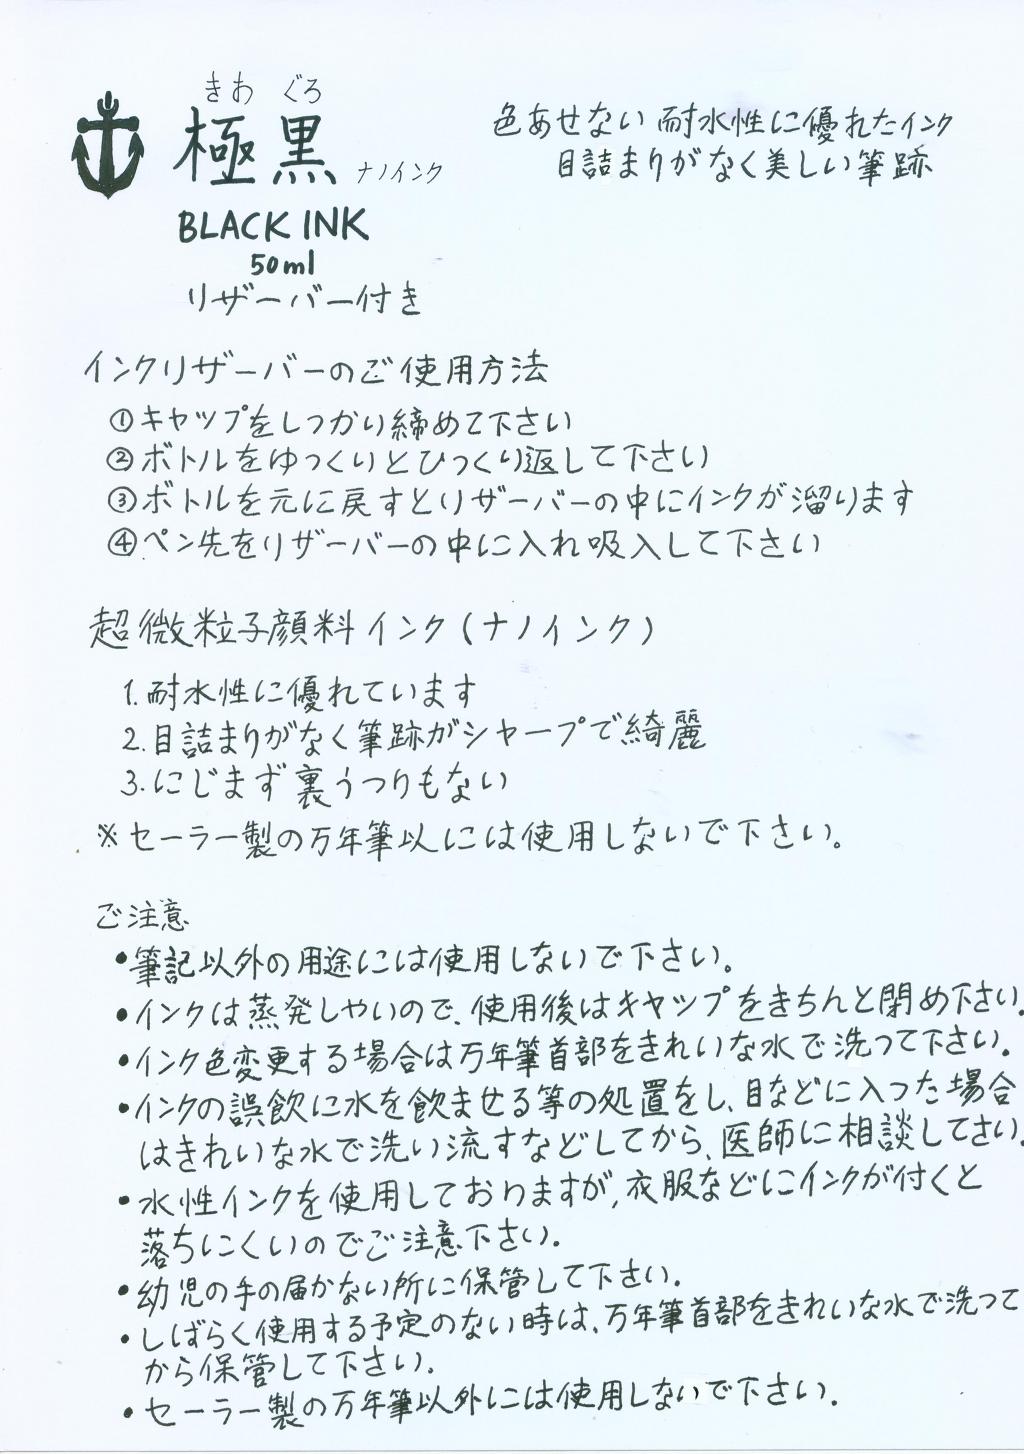 きわ ぐろ
極黒 ナノインク
BLACK INK
50ml
リザーバー付き
色あせない 耐水性に優れたインク
目詰まりがなく美しい筆跡
インクリザーバーのご使用方法
①キャップをしっかり締めて下さい
②ボトルをゆっくりとひっくり返して下さい
③ボトルを元に戻すとリザーバーの中にインクが溜ります
④ペン先をリザーバーの中に入れ吸入して下さい
超微粒子顔料インク(ナノインク)
1.耐水性に優れています
2.目詰まりがなく筆跡がシャープで綺麗
3.にじまず裏うつりもない
※セーラー製の万年筆以には使用しないで下さい。
ご注意
・筆記以外の用途には使用しないで下さい。
・インクは蒸発しやいので、使用後はキャップをきちんと閉め下さい.
・インク色変更する場合は万年筆首部をきれいな水で洗って下さい.
・インクの誤飲に水を飲ませる等の処置をし、目などに入った場合
はきれいな水で洗い流すなどしてから、医師に相談してさい.
・水性インクを使用しておりますが,衣服などにインクが付くと
落ちにくいのでご注意下さい.
・幼児の手の届かない所に保管して下さい.
・しばらく使用する予定のない時は、万年筆首部をきれいな水で洗って
から保管して下さい.
・セーラー製の万年筆以外には使用しないで下さい.